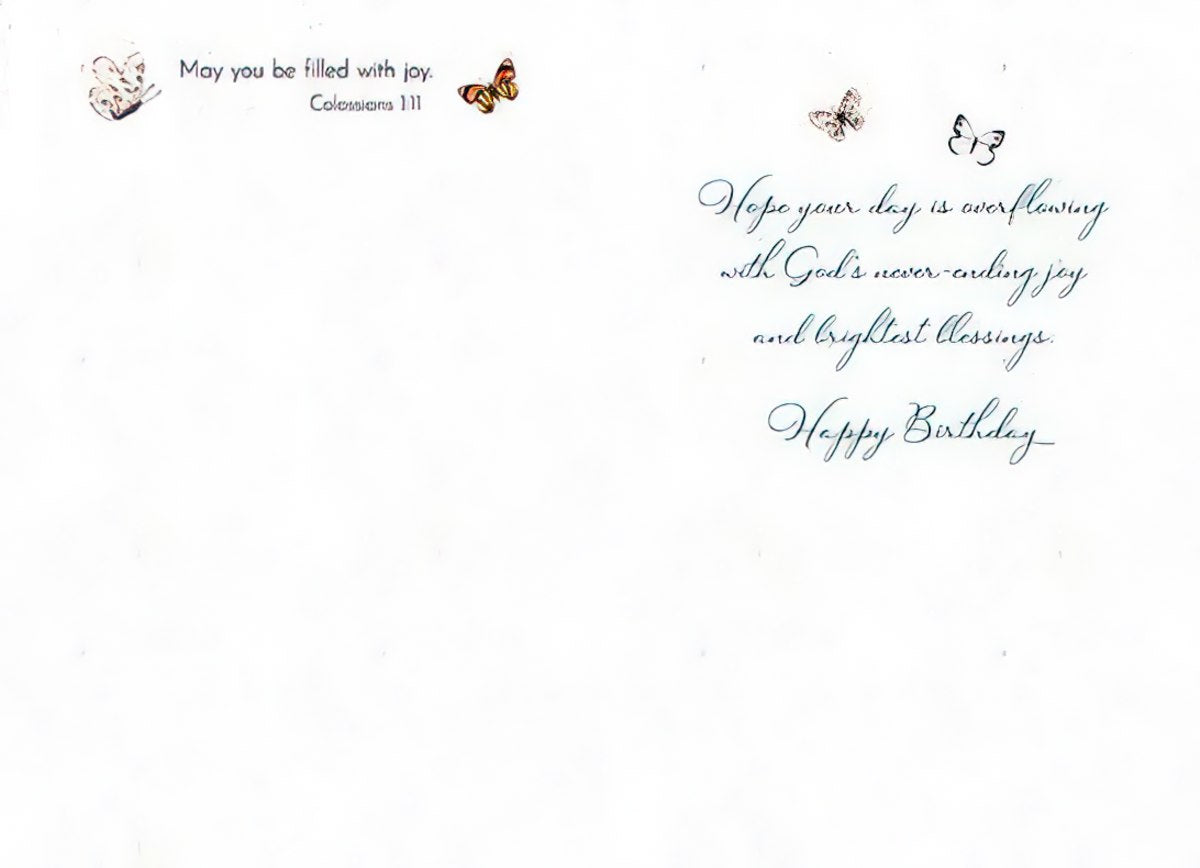 May you be filled with joy.
Colossians 1:11
Hope your day is overflowing
with God's never-ending joy
and brightest blessings.
Happy Birthday